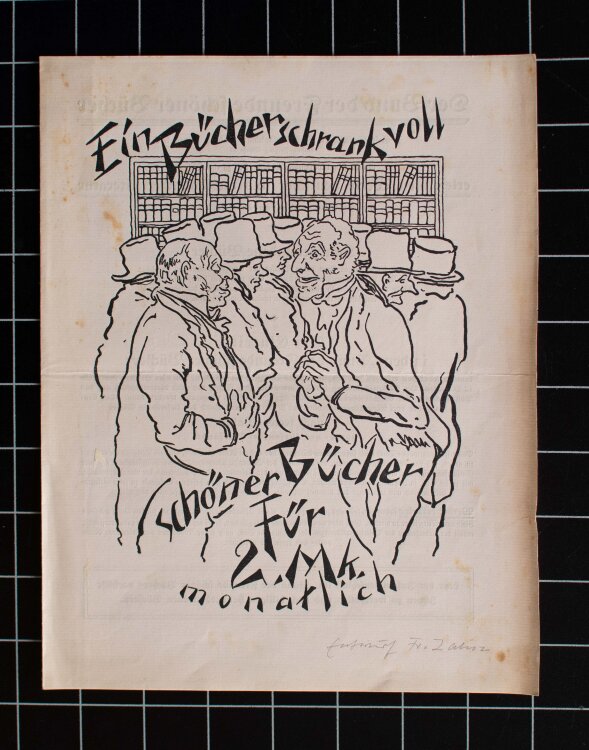 Ein Bücherschrank voll
schöner Bücher
für
2.Mk.
monatlich
Entwurf Fr.